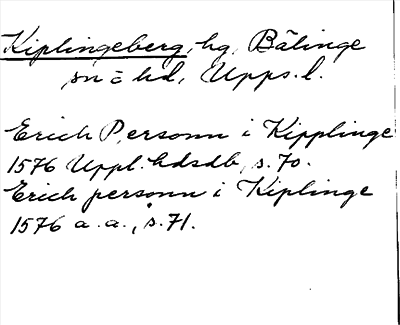 Kiplingeberg, hg, Bälinge
sn o hd, Upps. l.
Erich Personn i Kipplinge
1576 Uppl. hdsdb, s. 70.
Erich personn i Kiplinge
1576 a. a., s. 71.